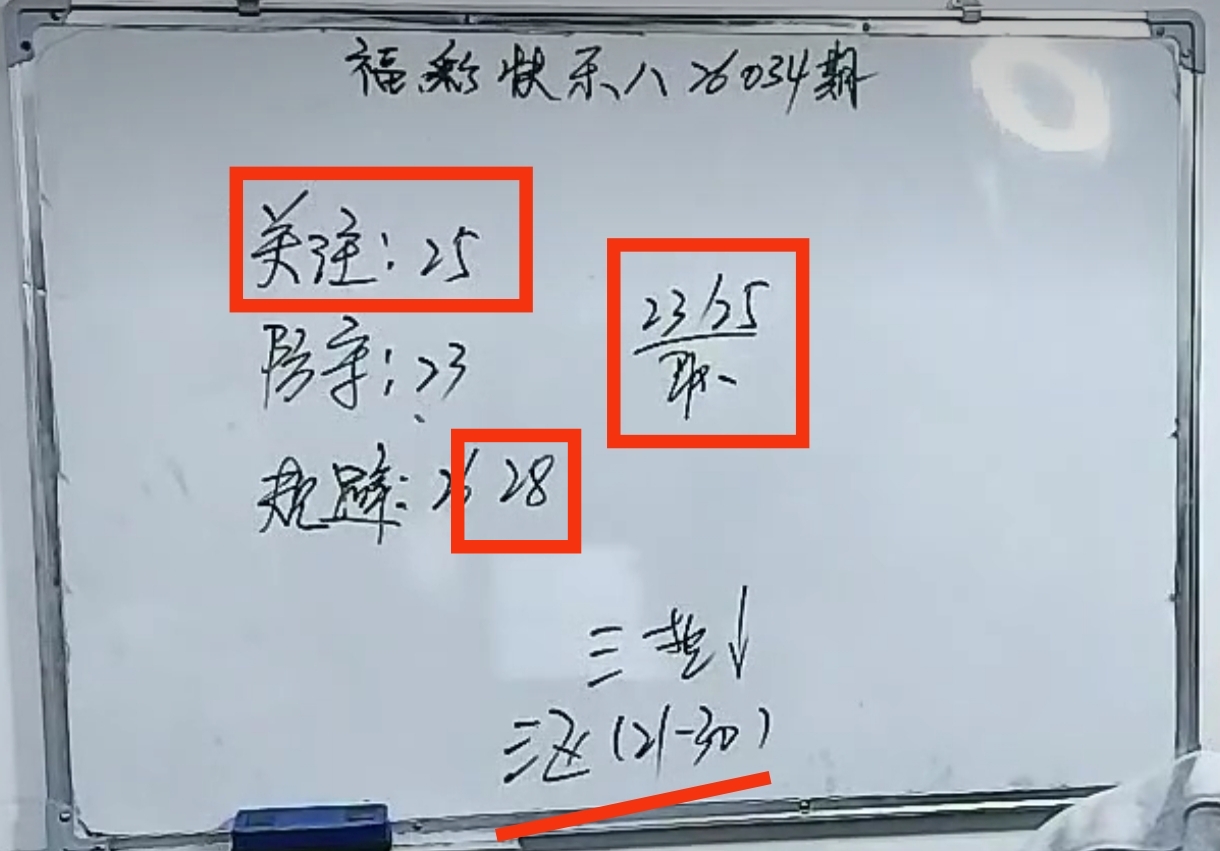 福彩快乐八26034期
关注：25
23/25
取
防守：23
规避：26 28
三区↓
三区(21-30)